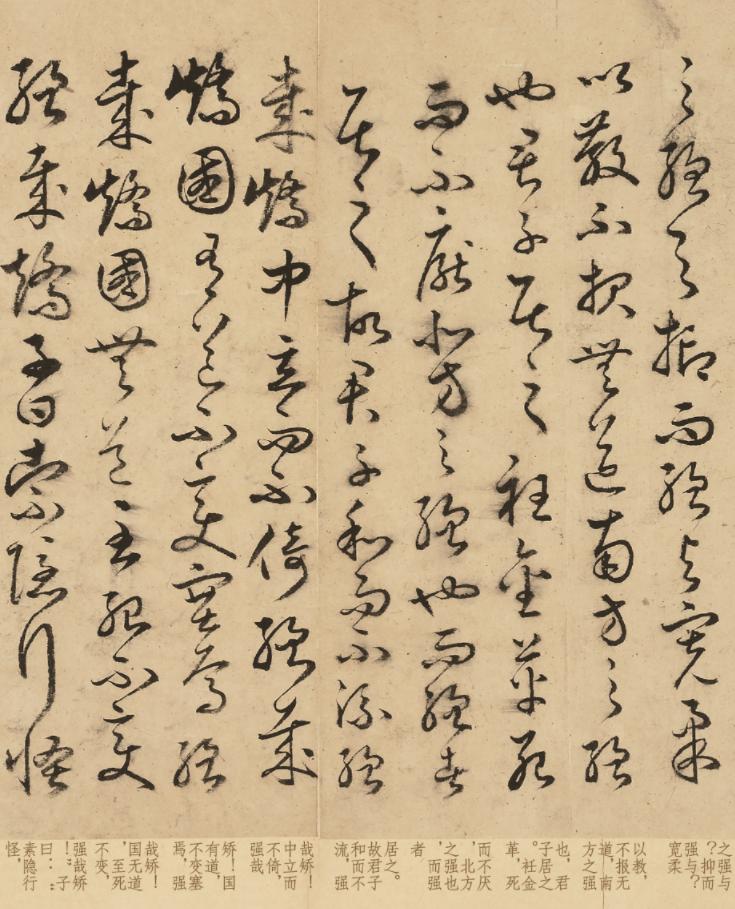 之強與抑而強與寬柔
以教不報無道南方之強
也君子居之衽金革死
而不厭北方之強也而強者
居之故君子和而不流強
哉矯中立而不倚強哉
矯國有道不變塞焉強
哉矯國無道至死不變
強哉矯子曰素隱行怪
之强与
？抑而
强与？
宽柔
以教，
不报无
道，南
方之强
也，君
子居之
。衽金
革，死
而不厌
，北方
之强也
，而强
者
居之。
故君子
和而不
流，强
哉矫！
中立而
不倚，
强哉
矫！国
有道，
不变塞
焉，强
哉矫！
国无道
，至死
不变，
强哉矫
！”子
曰：“
素隐行
怪，